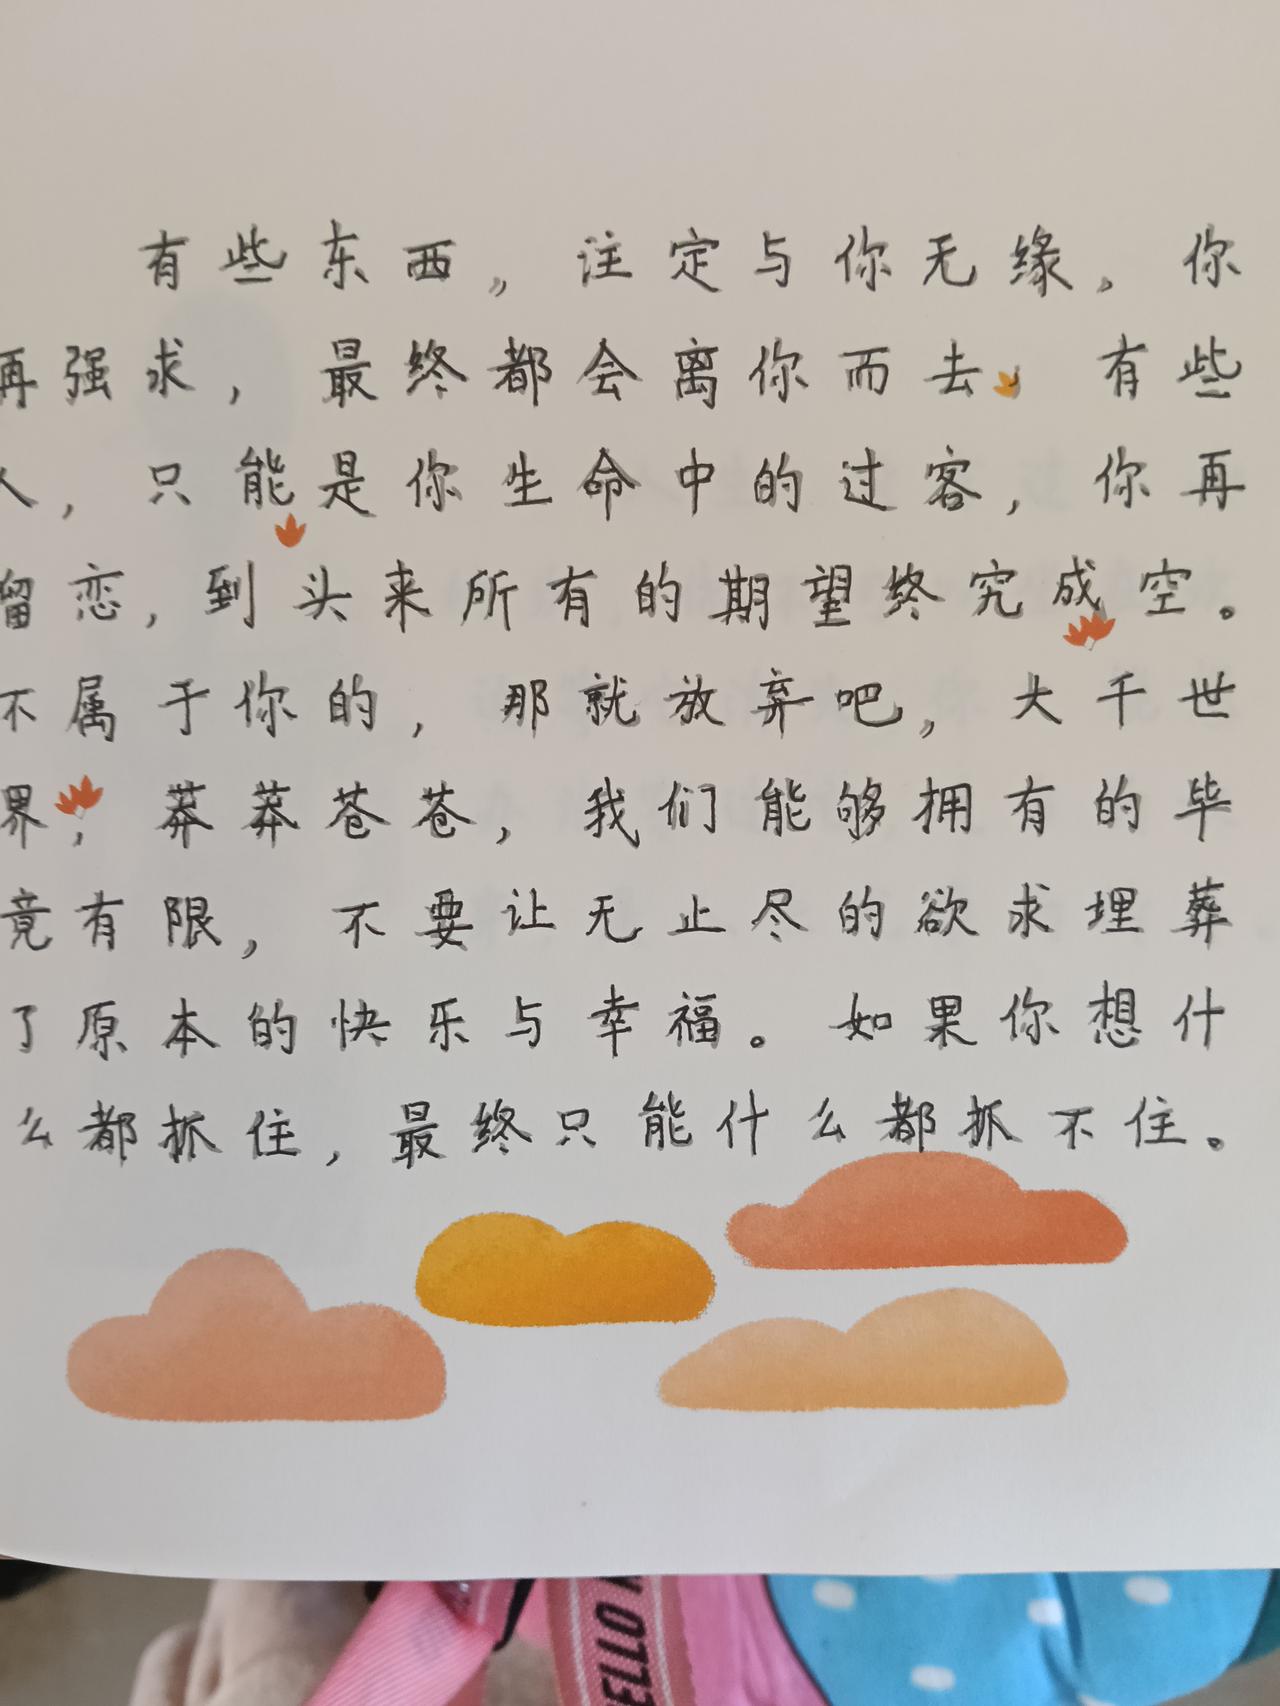 有些东西，注定与你无缘，你
再强求，最终都会离你而去，有些
人，只能是你生命中的过客，你再
留恋，到头来所有的期望终究成空。
不属于你的，那就放弃吧，大千世
界，莽莽苍苍，我们能够拥有的毕
竟有限，不要让无止尽的欲求埋葬
了原本的快乐与幸福。如果你想什
么都抓住，最终只能什么都抓不住。
ELLO